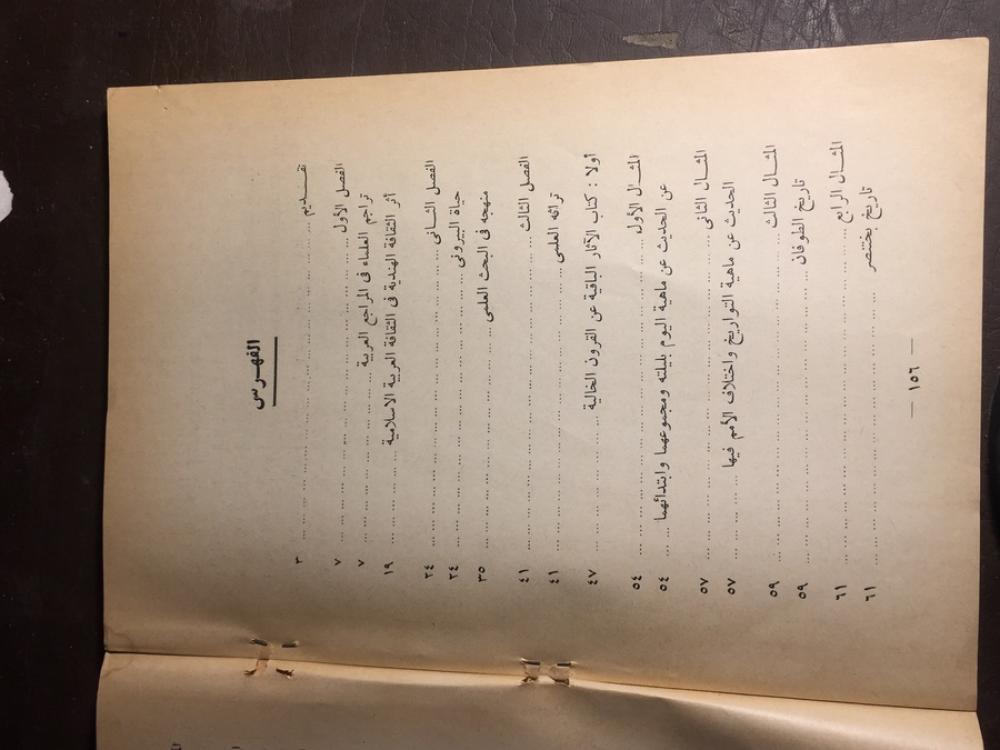 الفهرس
تقديم ... ٣
الفصل الأول ... ٧
تراجم العلماء فى المراجع العربية ... ٧
أثر الثقافة الهندية فى الثقافة العربية الاسلامية ... ١٩
الفصل الثانى ... ٢٤
حياة البيرونى ... ٢٤
منهجه فى البحث العلمى ... ٣٥
الفصل الثالث ... ٤١
تراثه العلمى ... ٤١
أولا : كتاب الآثار الباقية عن القرون الخالية ... ٤٧
المثال الأول ... ٥٤
عن الحديث عن ماهية اليوم بليلته ومجموعهما وابتدائهما ... ٥٤
المثال الثانى ... ٥٧
الحديث عن ماهية التواريخ واختلاف الأمم فيها ... ٥٧
المثال الثالث ... ٥٩
تاريخ الطوفان ... ٥٩
المثال الرابع ... ٦١
تاريخ بختنصر ... ٦١
— ١٥٦ —